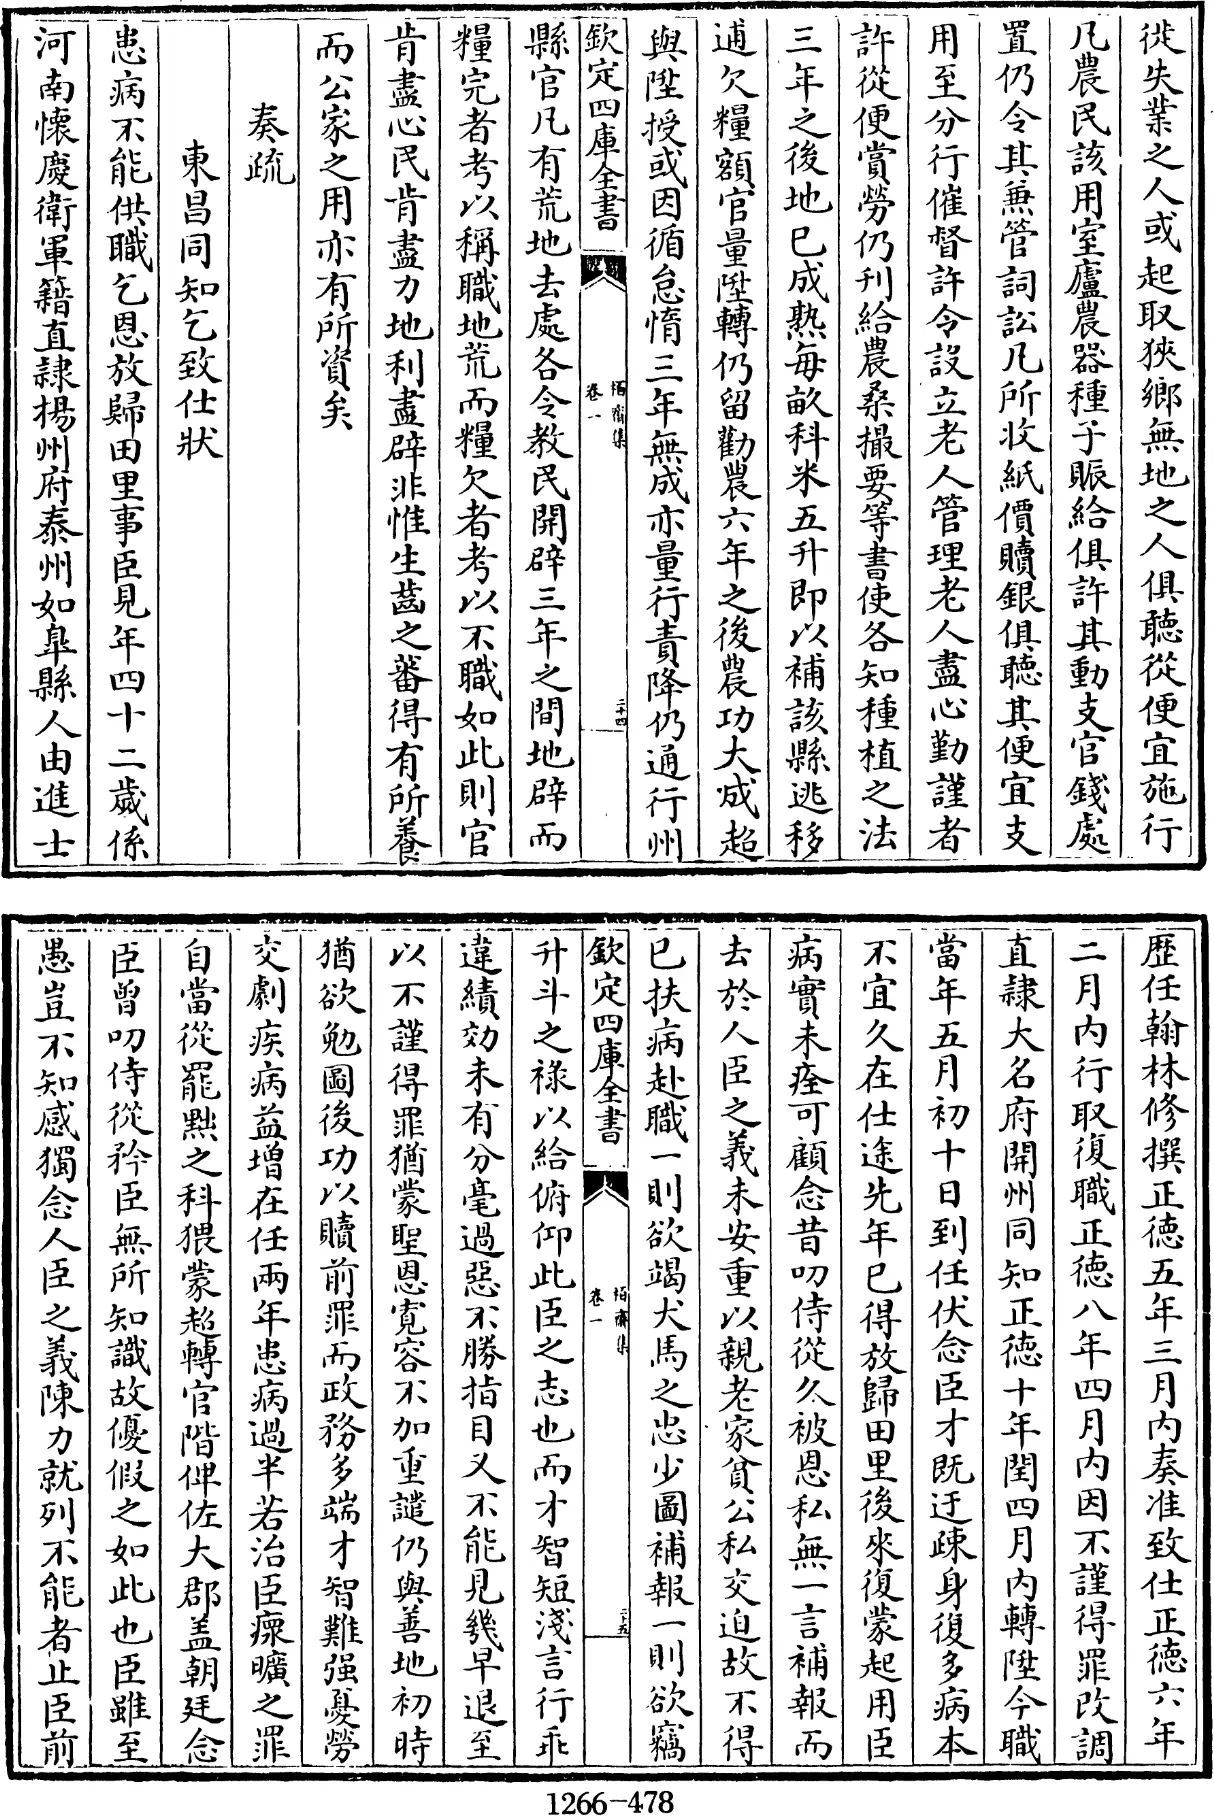 徙失業之人或起取狹鄉無地之人俱聽從便宜施行
凡農民該用室廬農器種子賑給俱許其動支官錢處
置仍令其兼管詞訟凡所收紙價贖銀俱聽其便宜支
用至分行催督許令設立老人管理老人盡心勤謹者
許從便賞勞仍刋給農桑撮要等書使各知種植之法
三年之後地已成熟每畝科米五升即以補該縣逃移
逋欠糧額官量陞轉仍留勸農六年之後農功大成超
與陞授或因循怠惰三年無成亦量行責降仍通行州
欽定四庫全書
栢齋集
卷一
二十四
縣官凡有荒地去處各令教民開辟三年之間地辟而
糧完者考以稱職地荒而糧欠者考以不職如此則官
肯盡心民肯盡力地利盡辟非惟生齒之蕃得有所養
而公家之用亦有所資矣
奏疏
東昌同知乞致仕狀
患病不能供職乞恩放歸田里事臣見年四十二歲係
河南懷慶衛軍籍直隷揚州府泰州如臯縣人由進士
歷任翰林修撰正德五年三月內奏准致仕正德六年
二月內行取復職正德八年四月內因不謹得罪改調
直隷大名府開州同知正德十年閏四月內轉陞今職
當年五月初十日到任伏念臣才既迂疎身復多病本
不宜久在仕途先年已得放歸田里後來復蒙起用臣
病實未痊可顧念昔叨侍從久被恩私無一言補報而
去於人臣之義未安重以親老家貧公私交迫故不得
已扶病赴職一則欲竭犬馬之忠少圖補報一則欲竊
欽定四庫全書
栢齋集
卷一
二十五
升斗之祿以給俯仰此臣之志也而才智短淺言行乖
違績効未有分毫過惡不勝指目又不能見幾早退至
以不謹得罪猶蒙聖恩寬容不加重譴仍與善地初時
猶欲勉圖後功以贖前罪而政務多端才智難强憂勞
交劇疾病益增在任兩年患病過半若治臣瘝曠之罪
自當從罷黜之科猥蒙超轉官階俾佐大郡盖朝廷念
臣曾叨侍從矜臣無所知識故優假之如此也臣雖至
愚豈不知感獨念人臣之義陳力就列不能者止臣前
1266-478